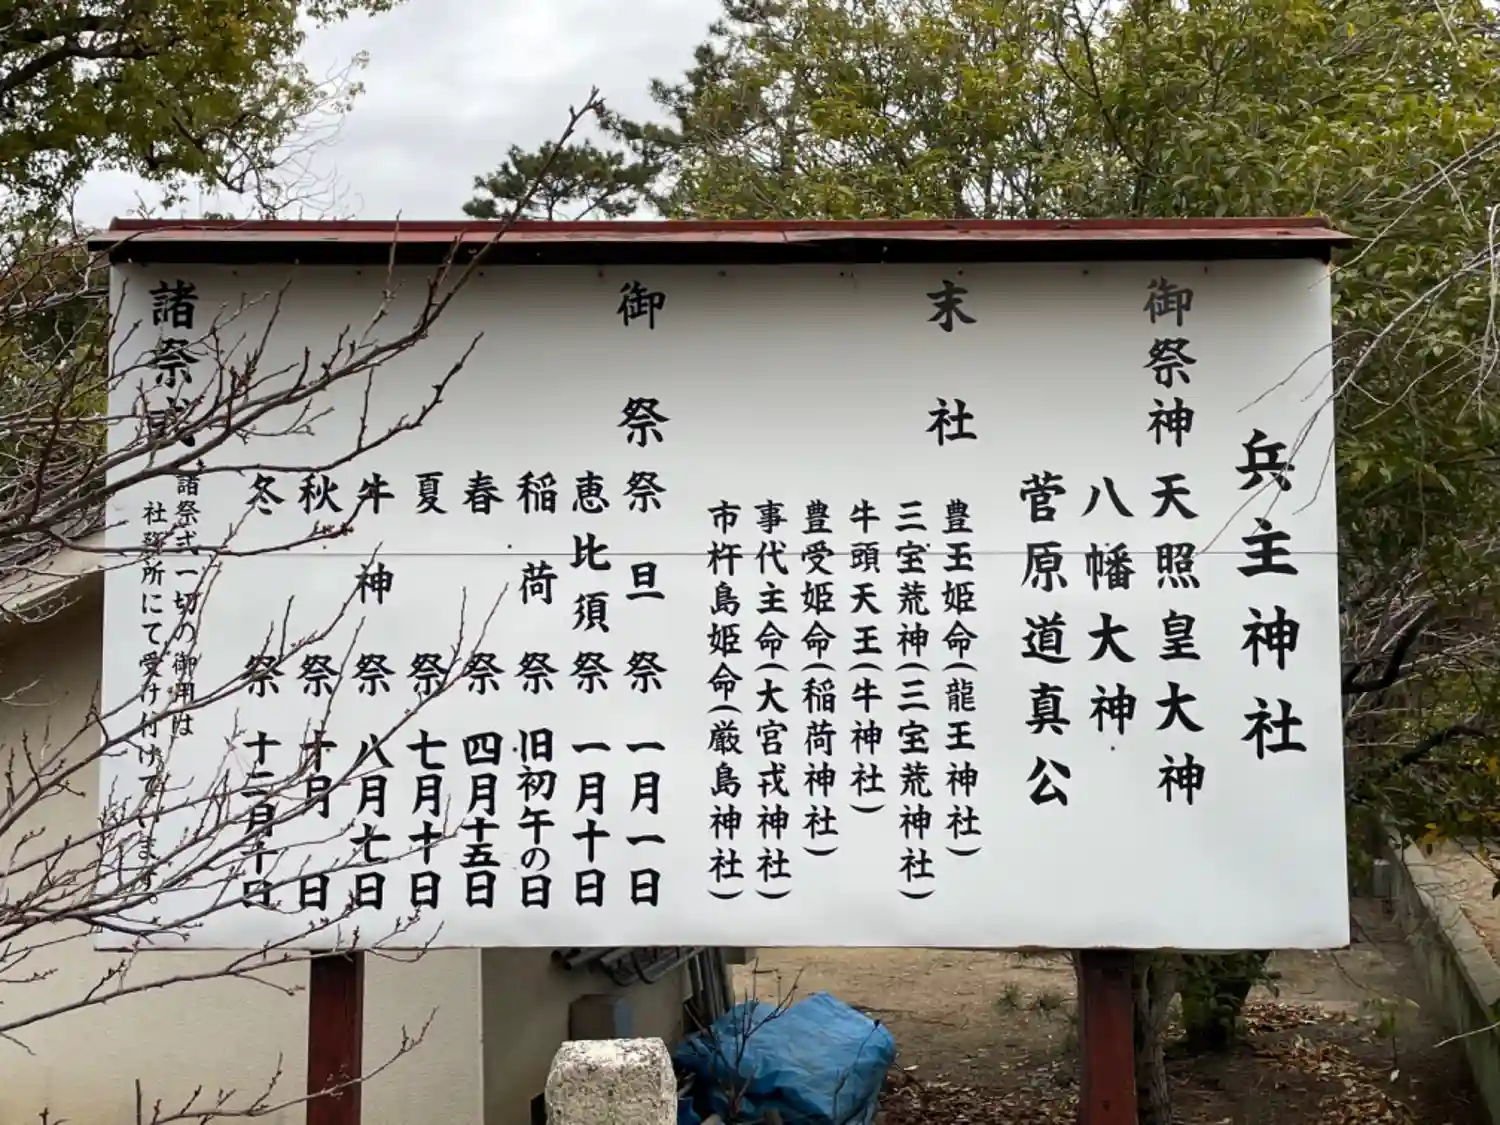 兵主神社
御祭神 天照皇大神
八幡大神
菅原道真公
末社
豊玉姫命(龍王神社)
三宝荒神(三宝荒神社)
牛頭天王(牛神社)
豊受姫命(稲荷神社)
事代主命(大宮戎神社)
市杵島姫命(厳島神社)
御祭
祭旦祭 一月一日
恵比須祭 一月十日
稲荷祭 旧初午の日
春祭 四月十五日
夏祭 七月十日
牛神祭 八月七日
秋祭 十月 日
冬祭 十二月十日
諸祭式
諸祭式一切の御用は
社務所にて受け付けています。